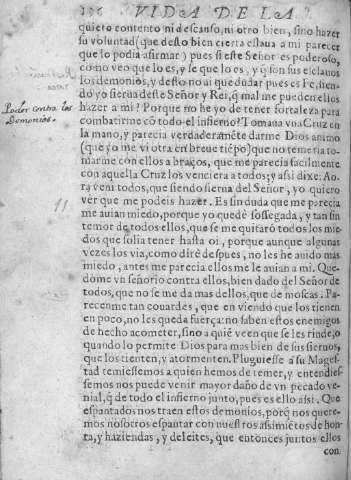 206 VIDA DE LA
quiero contento ni descanso, ni otro bien, sino hazer
su voluntad (que desto bien cierta estaua a mi parecer
que lo podia afirmar) pues si este Señor es poderoso,
como veo que lo es, y se que lo es, y q̃ son sus esclauos
los demonios, y desto no ai que dudar pues es Fe, sien-
do yo sierua deste Señor y Rei, q̃ mal me pueden ellos
hazer a mi? Porque no he yo de tener fortaleza para
combatirme cõ todo el infierno? Tomaua vna Cruz en
la mano, y parecia verdaderamẽte darme Dios animo
(que yo me vi otra en breue tiẽpo) que no temeria to-
marme con ellos a braços, que me parecia facilmente
con aquella Cruz los venciera a todos; y assi dixe: Ao-
ra veni todos, que siendo sierua del Señor, yo quiero
ver que me podeis hazer. Es sin duda que me parecia
me auian miedo, porque yo quedè sossegada, y tan sin
temor de todos ellos, que se me quitarõ todos los mie-
dos que solia tener hasta oi, porque aunque algunas
vezes los via, como dirè despues, no les he auido mas
miedo, antes me parecia ellos me le auian a mi. Que-
dòme vn señorio contra ellos, bien dado del Señor de
todos, que no se me da mas dellos, que de moscas. Pa-
recenme tan couardes, que en viendo que los tienen
en poco, no les queda fuerça: no saben estos enemigos
de hecho acometer, sino a quiẽ veen que se les rinde, o
quando lo permite Dios para mas bien de sus sieruos,
que los tienten, y atormenten. Pluguiesse a su Mages-
tad temiessemos a quien hemos de temer, y entendies-
semos nos puede venir mayor daño de vn pecado ve-
nial, q̃ de todo el infierno junto, pues es ello assi. Que
espantados nos traen estos demonios, porq̃ nos quere-
mos nosotros espantar con nuestros assimiẽtos de hon-
ra, y haziendas, y deleites, que entonces juntos ellos
con
Poder contra los
Demonios.
11